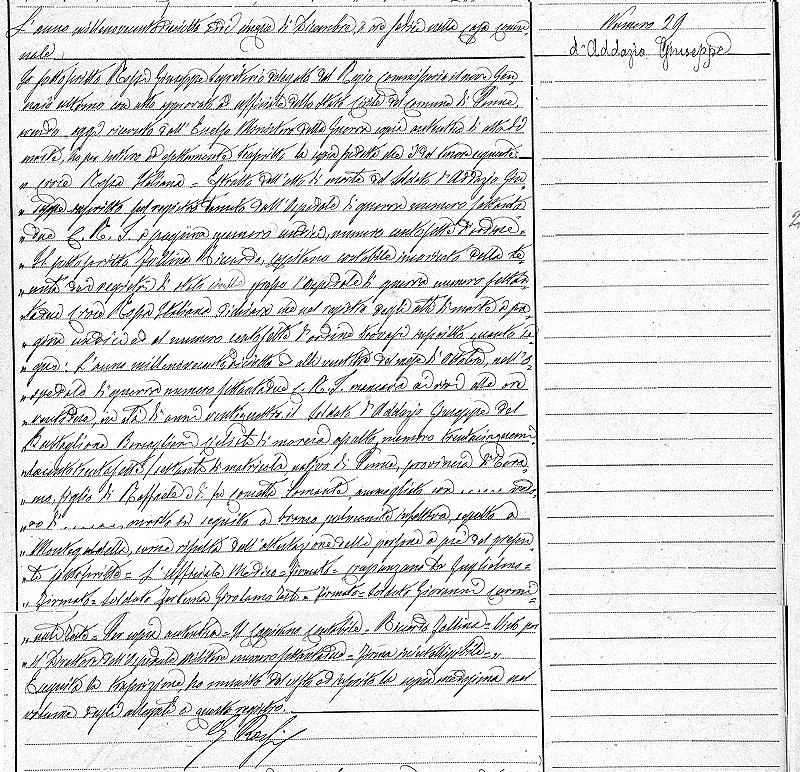 L'anno millenovecentodiciotto addì cinque di Dicembre, a ore sedici nella casa comu-
nale.
Io sottoscritto Rossi Giuseppe Segretario delegato dal Regio Commissario il nove Gen
naio ultimo con atto approvato ad ufficiale dello Stato Civile del Comune di Penne,
avendo oggi ricevuto dall' Ministero della Guerra copia autentica di atto di
morte, ho per intiero ed esattamente trascritto la copia predetta che è del tenore seguente:
" Croce Rossa Italiana = Estratto dell'atto di morte del Soldato d'Addazio Giu
" seppe inscritto sul registro tenuto dall'Ospedale di guerra numero settanta
" due C. R. I. a pagina numero undici, numero centosette d'ordine =
" Il sottoscritto Ricardo, capitano contabile incaricato della te
" nuta dei registri di stato civile presso l'ospedale di guerra numero settan
" tadue Croce Rossa Italiana dichiara che nel registro degli atti di morte a pa
" gina undici ed al numero centosette d'ordine trovasi inscritto quanto se
" gue: L'anno millenovecentodiciotto ed alli ventotto del mese di Ottobre, nell'o
" spedale di guerra numero settantadue C. R. I. mancava ai vivi alle ore
" ventidue, in età di anni ventiquattro il Soldato d'Addazio Giuseppe del
" Battaglione Bersaglieri ciclisti di marcia numero
" settanta di matricola nativo di Penne, provincia di Tera
" mo, figlio di Raffaele e di fu ammogliato con ........ vedo
" vo di ........ morto in seguito a bronco polmonite sepolto a
" come risulta dall'attestazione delle persone a piè del presen
" te sottoscritte = L'ufficiale Medico = Firmato = Dr Guglielmo =
" Firmato = Soldato Girolamo teste = Firmato = Soldato Giovanni
" teste = Per copia autentica = Il Capitano Contabile = Ricardo = Visto per
" il Direttore dell'Ospedale Militare numero settantadue = Firma inintelligibile = "
Eseguita la trascrizione ho munito del visto ed inserito la copia medesima nel
volume degli allegati a questo registro.
G. Rossi
Numero 29
d'Addazio Giuseppe